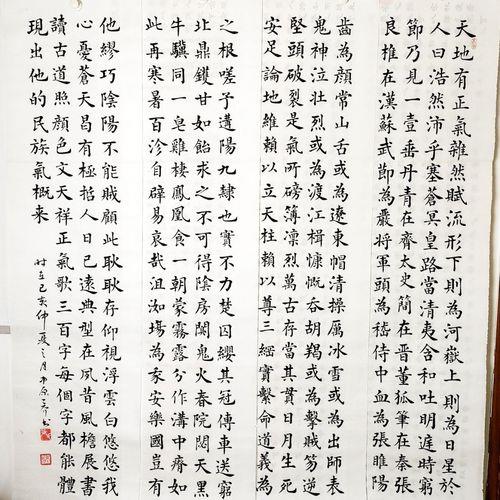 天地有正氣雜然賦流形下則為河嶽上則為日星於
人曰浩然沛乎塞蒼冥皇路當清夷含和吐明庭時窮
節乃見一壹垂丹青在齊太史簡在晉董狐筆在秦張
良椎在漢蘇武節為嚴將軍頭為嵇侍中血為張睢陽
齒為顏常山舌或為遼東帽清操厲冰雪或為出師表
鬼神泣壯烈或為渡江楫慷慨吞胡羯或為擊賊笏逆
堅頭破裂是氣所磅簿凛烈萬古存當其貫日月生死
安足論地維賴以立天柱賴以尊三綱實繫命道義為
之根嗟予遘陽九隸也實不力楚囚纓其冠傳車送窮
北鼎鑊甘如飴求之不可得陰房闃鬼火春院閟天黑
牛驥同一皂雞棲鳳凰食一朝蒙霧露分作溝中瘠如
此再寒暑百沴自辟易哀哉沮洳場為家安樂國豈有
他繆巧陰陽不能賊顧此耿耿存仰視浮雲白悠悠我
心憂蒼天曷有極哲人日已遠典型在夙昔風檐展書
讀古道照顏色文天祥正氣歌三百字每個字都能體
現出他的民族氣概來
时在己亥仲夏之月中原